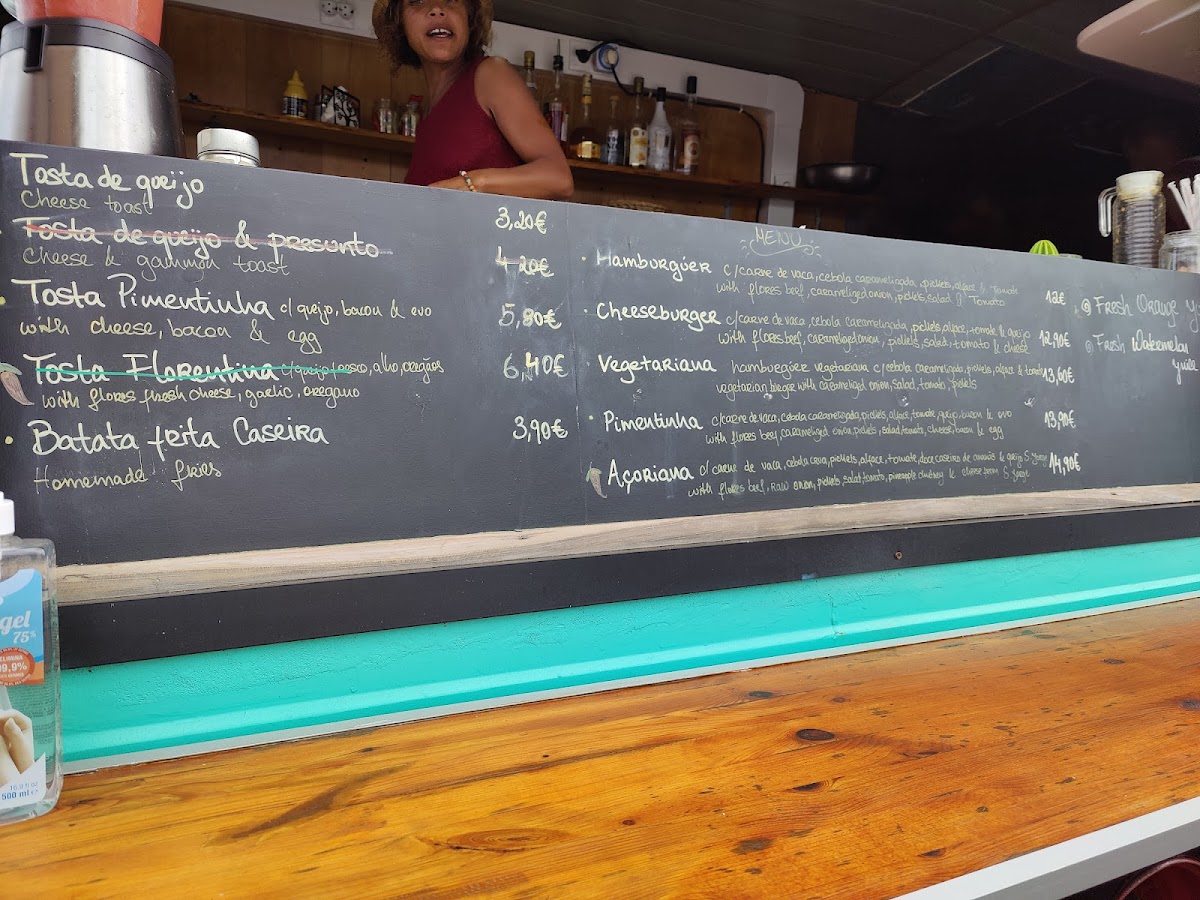 Tosta de queijo
Cheese toast
3,20€
Tosta de queijo & presunto
cheese & gammon toast
4,20€
Tosta Pimentinha c/ queijo, bacon & ovo
with cheese, bacon & egg
5,80€
Tosta Florentina c/ queijo fresco, alho, oregãos
with flores fresh cheese, garlic, oregano
6,40€
Batata feita Caseira
Homemade fries
3,90€
MENU
Hamburgúer c/carne de vaca, cebola caramelizada, pickels, alface & Tomate
with flores beef, caramelized onion, pickels, salad & Tomato
12€
Cheeseburger c/carne de vaca, cebola caramelizada, pickels, alface, tomate & queijo
with flores beef, caramelized onion, pickels, salad, tomato & cheese
12,90€
Vegetariana hamburguér vegetariana c/cebola caramelizada, pickels, alface & tomate
vegetarian burger with caramelized onion, salad, tomato, pickels
13,60€
Pimentinha c/carne de vaca, cebola caramelizada, pickels, alface, tomate, queijo, bacon & ovo
with flores beef, caramelized onion, pickels, salad, tomato, cheese, bacon & egg
13,90€
Açoriana c/ carne de vaca, cebola crua, pickels, alface, tomate, doce caseiro de ananás & queijo S. Jorge
with flores beef, raw onion, pickels, salad, tomato, pineapple chutney & cheese from S. Jorge
14,90€
Fresh Orange
Fresh Watermelon
gel
75%
99,9%
16.9 fl oz
500 ml e